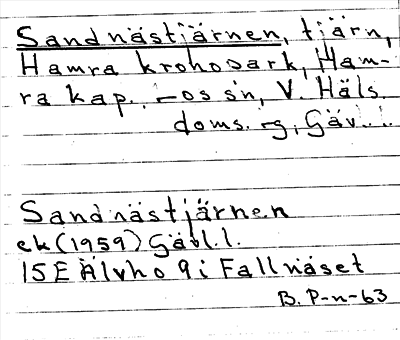 Sandnästjärnen, tjärn,
Hamra kronopark, Ham-
ra kap., -os sn, V. Häls.
doms. -g, Gäv. l.
Sandnästjärnen
ek (1959) Gävl. l.
15E Älvho 9i Fallnäset
B. P-n-63